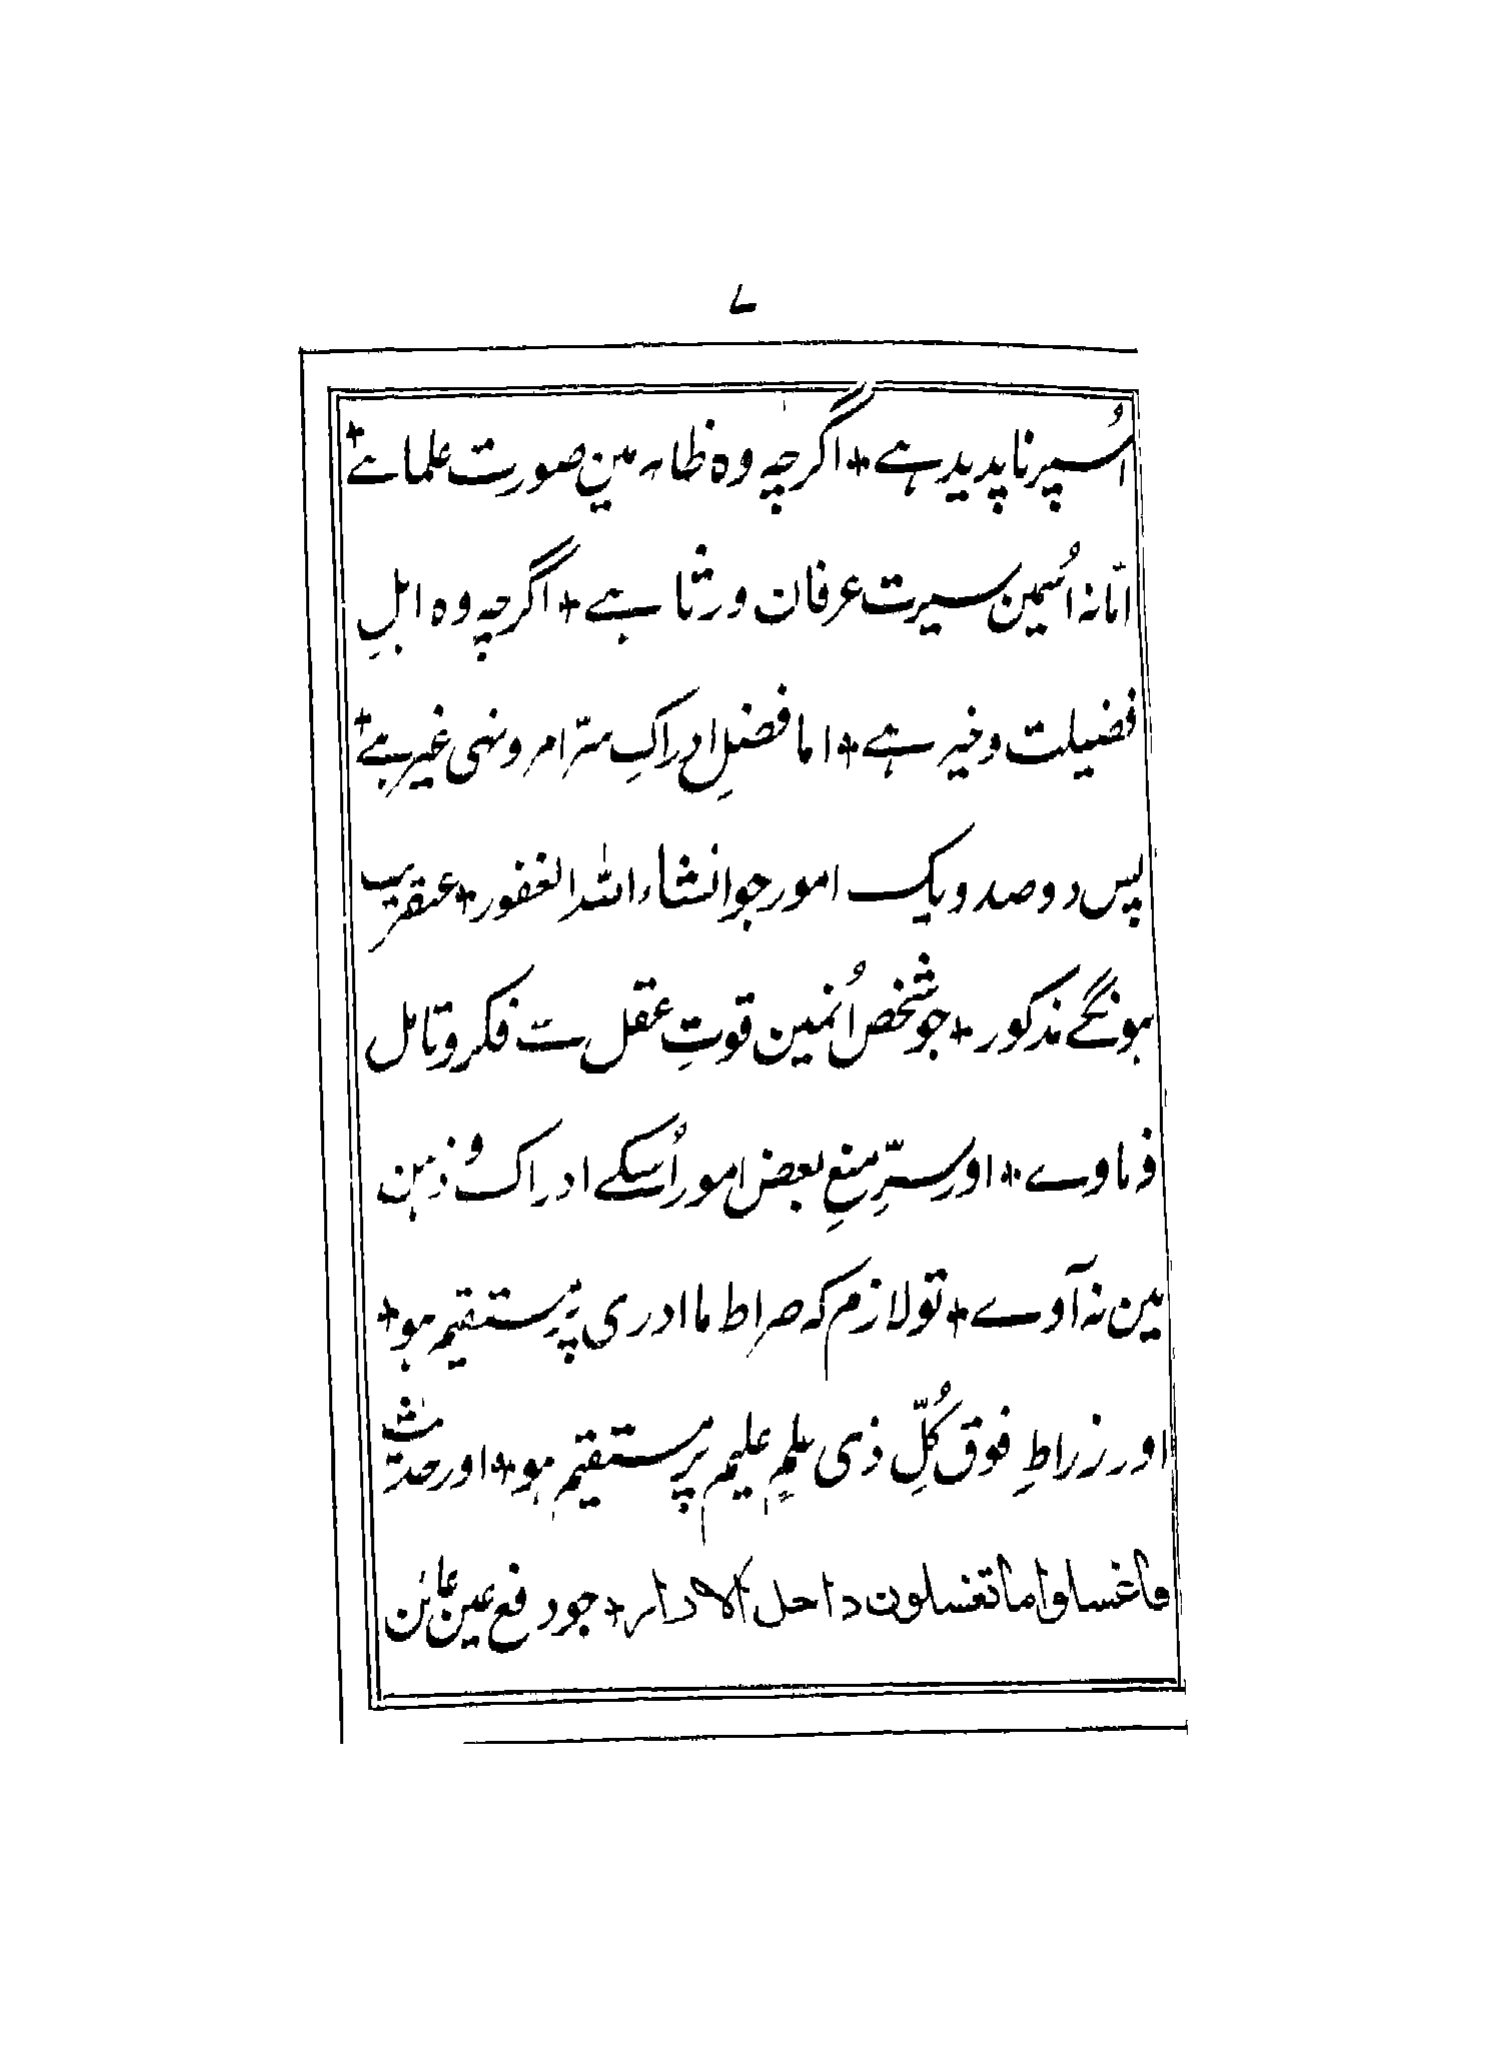 ۷
اُسپر ناپدید ہے + اگرچہ وہ ظاہر مین صورت علما ہے +
امّا نہ اُسمین سیرت عرفان ورثا ہے + اگرچہ وہ اہلِ
فضیلت و خیر ہے + اما فضلِ ادراکِ سرّ امر و نہی غیر ہے +
پس دو صد و یک امور جو انشاء اللہ الغفور + عنقریب
ہونگے مذکور + جو شخص اُنمین قوتِ عقل سے فکر و تامل
فرماوے + اور سرِّ منعِ بعض امور اُسکے ادراک و ذہن
مین نہ آوے + تو لازم کہ صراط ما ادری پر مستقیم ہو +
اور زراطِ فوق کُلِّ ذی علمٍ علیم پر مستقیم ہو + اور حدیث
فاغسلوا ما تغسلون داخل الازار + جو دفع عین عائن